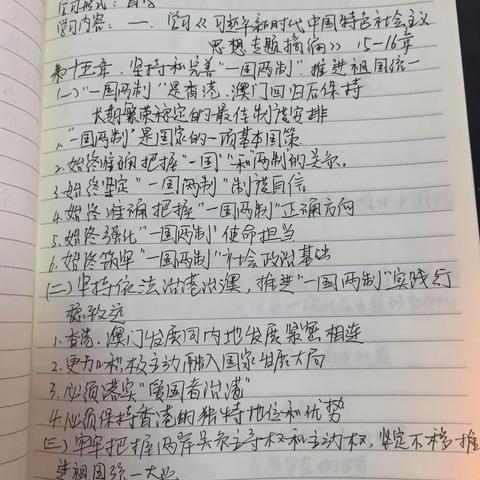 学习形式：自学
学习内容：一、学习《习近平新时代中国特色社会主义
思想专题摘编》15-16章
第十五章、坚持和完善"一国两制"推进祖国统一
(一)"一国两制"是香港、澳门回归后保持
长期繁荣稳定的最佳制度安排
1."一国两制"是国家的一项基本国策
2.始终准确把握"一国"和"两制"的关系.
3.始终坚定"一国两制"制度自信
4.始终准确把握"一国两制"正确方向
5.始终强化"一国两制"使命担当
6.始终筑牢"一国两制"社会政治基础
(二)坚持依法治港治澳，推进"一国两制"实践行
稳致远
1.香港、澳门发展同内地发展紧密相连
2.更加积极主动融入国家发展大局
3.必须落实"爱国者治港"
4.必须保持香港的独特地位和优势
(三)牢牢把握两岸关系主导权和主动权，坚定不移推
进祖国统一大业